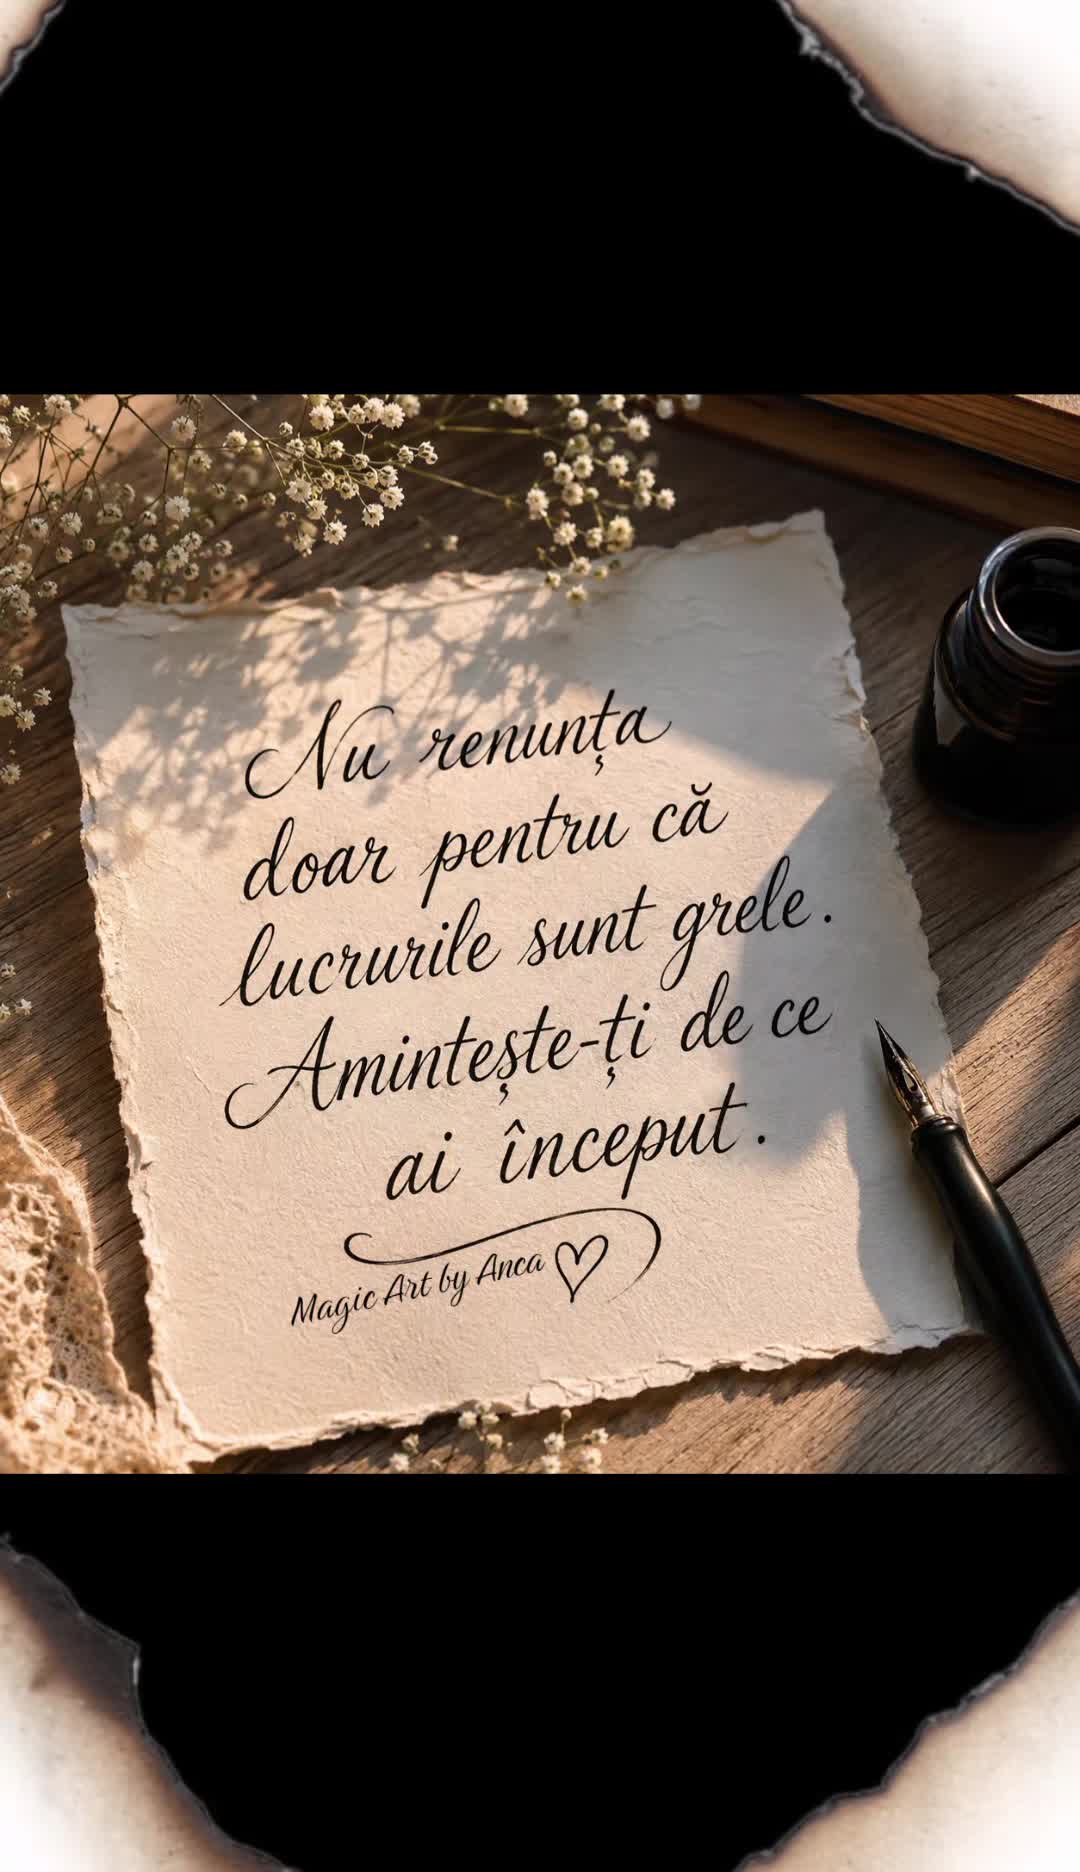 Nu renunța
doar pentru că
lucrurile sunt grele.
Amintește-ți de ce
ai început.
Magic Art by Anca